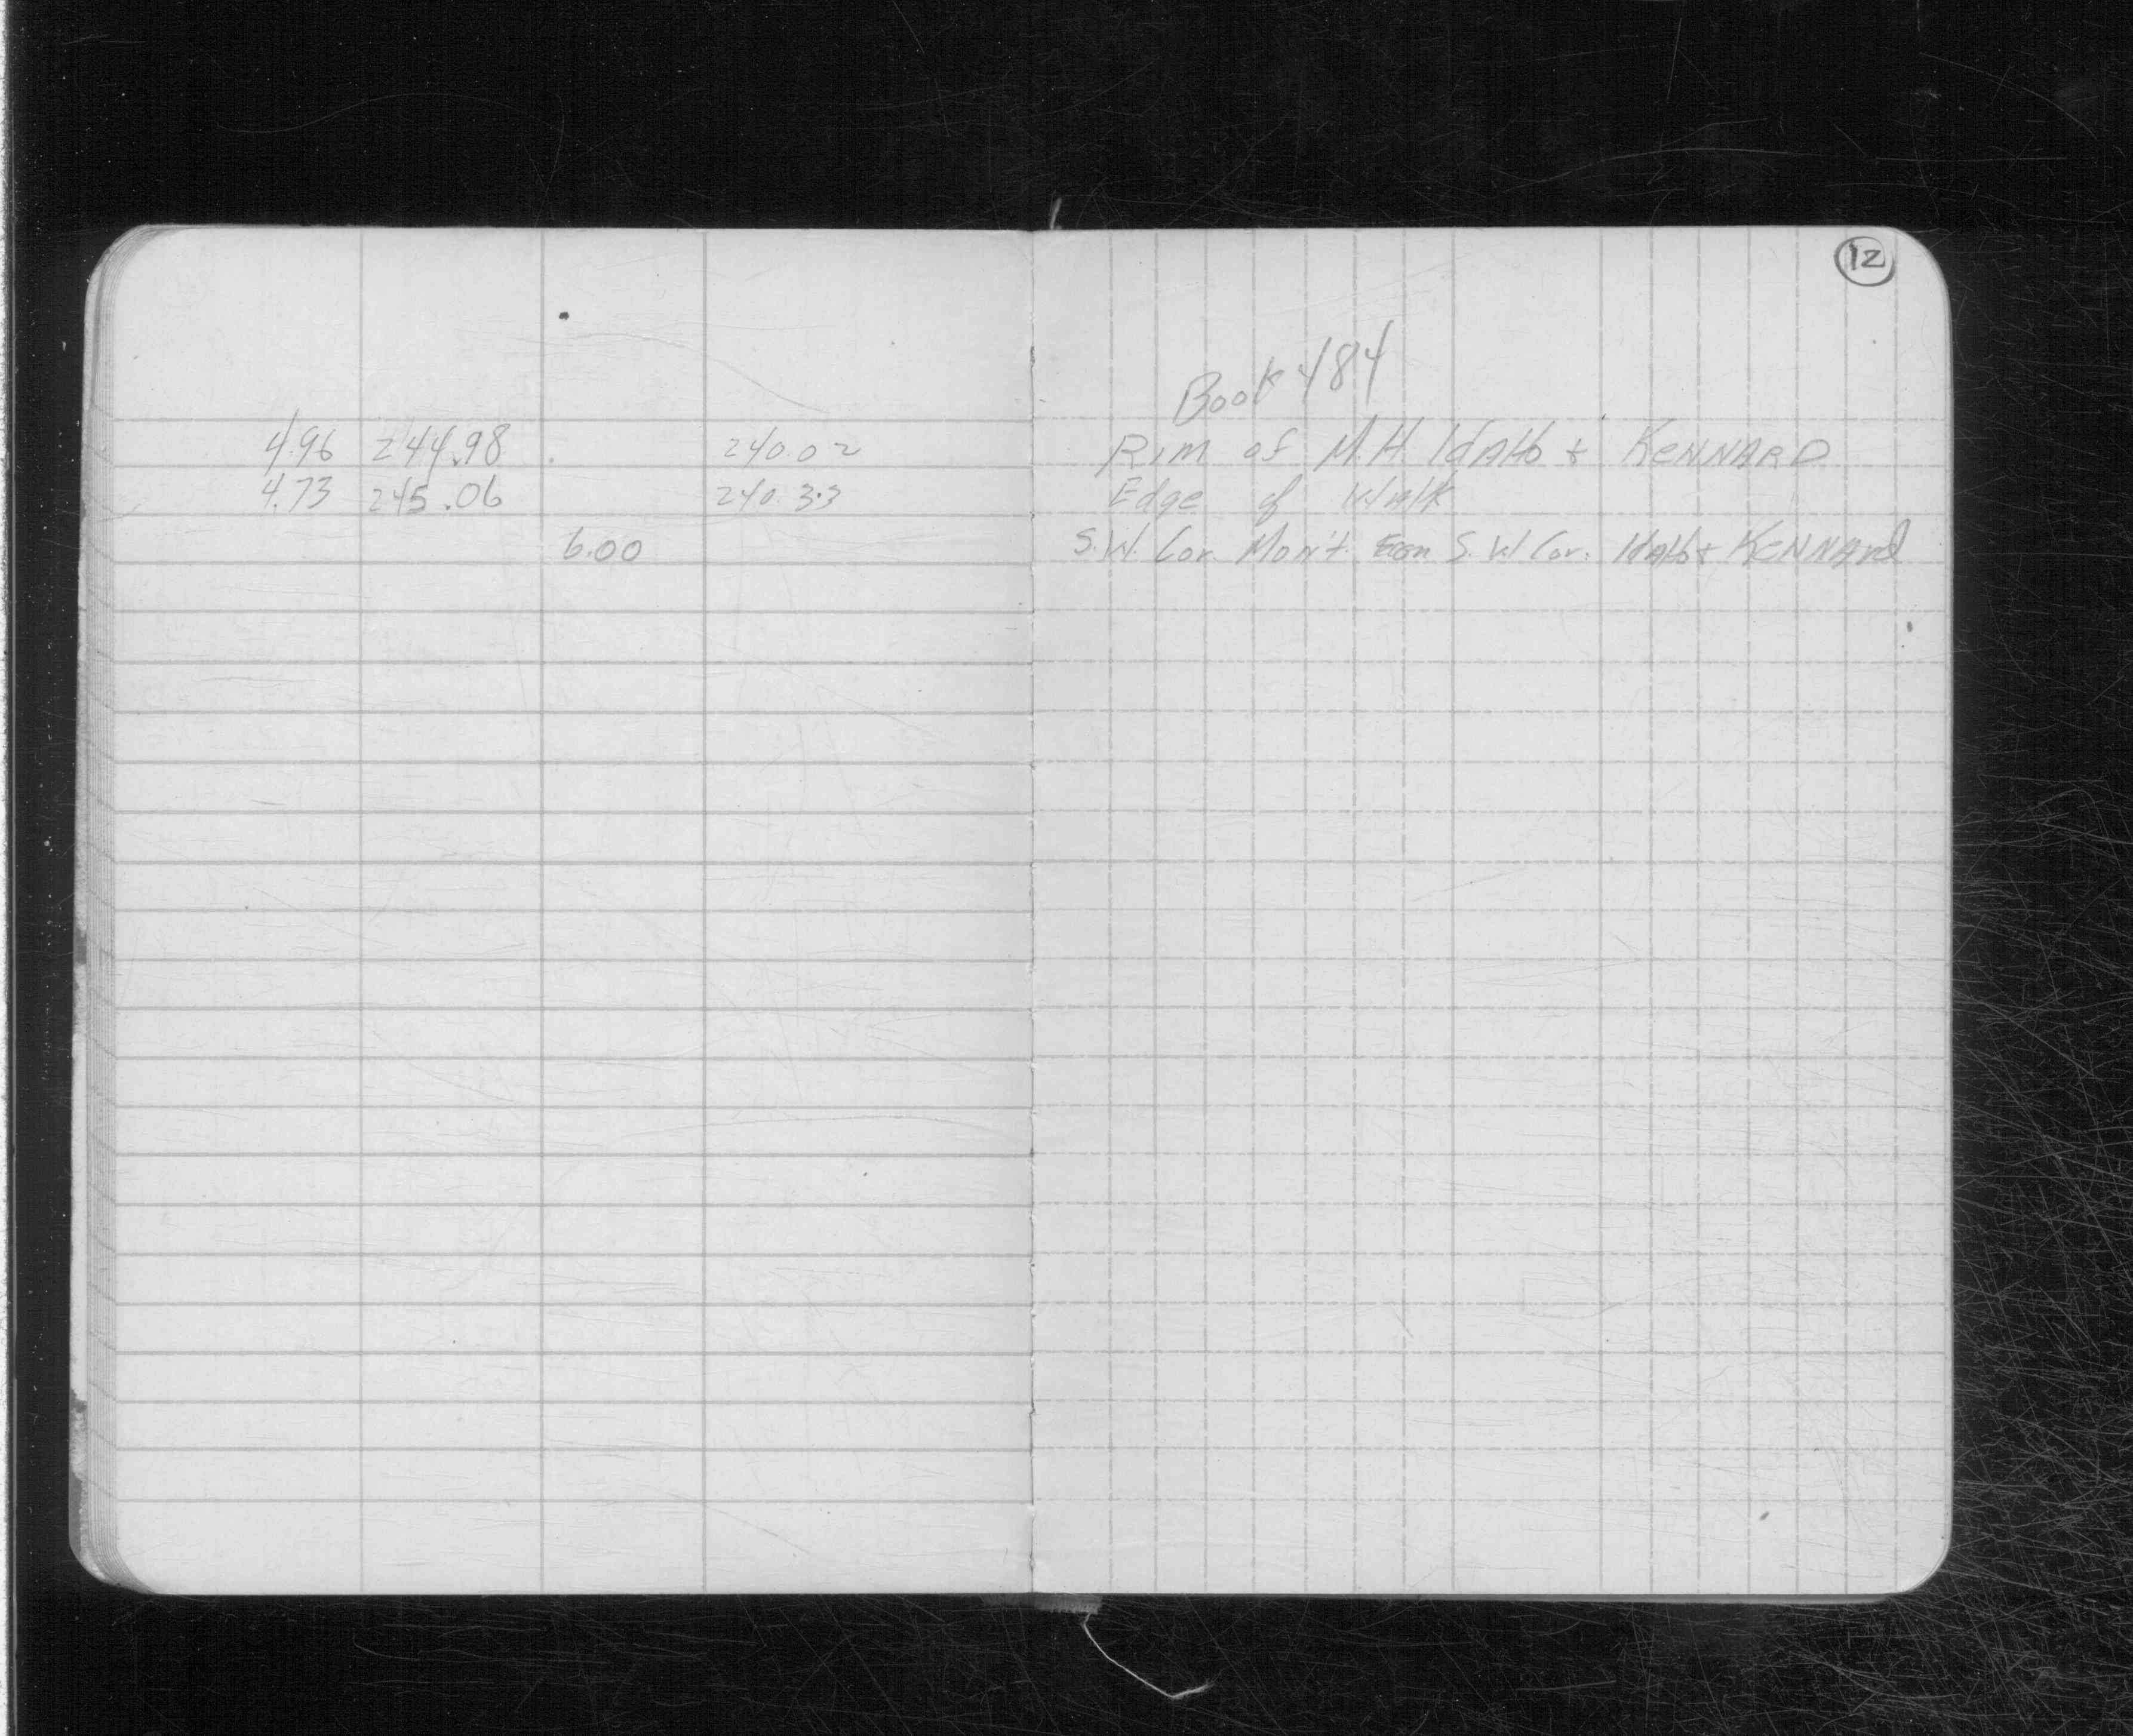 12
Book 484
4.96 244.98 240.02 Rim of M.H. IdAHo + KENNARD
4.73 245.06 240.33 Edge of Walk
6.00 S.W. Cor. Mon't. S.W Cor. IdAHo + KENNARd